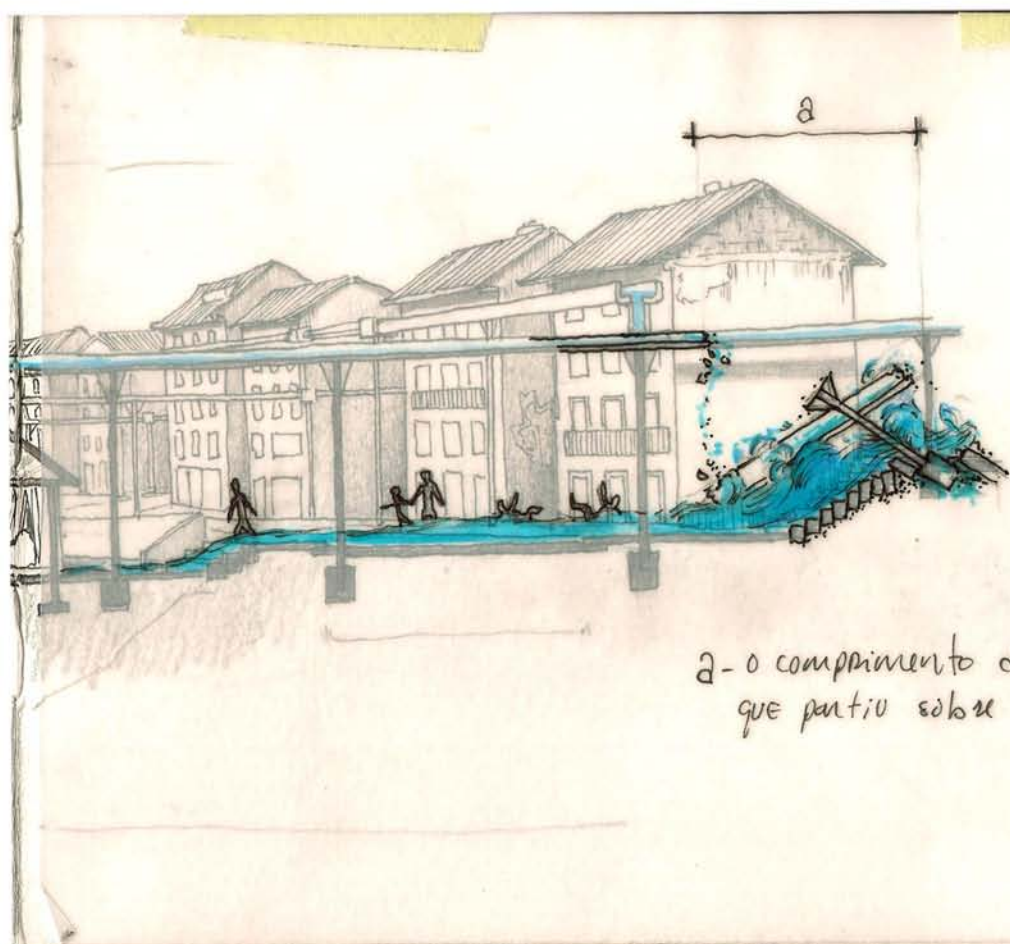 a
a - o comprimento
que partiu sôbre